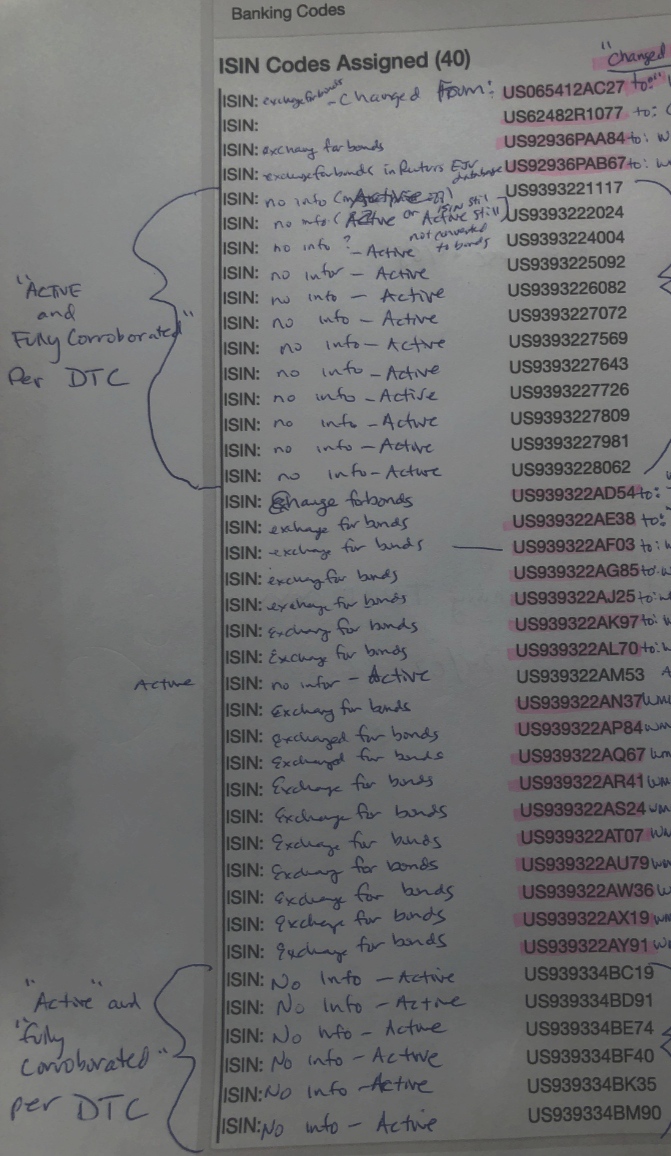 Banking Codes
ISIN Codes Assigned (40) "Changed
ISIN: exchange for bonds - Changed From: US065412AC27 to:
ISIN: US62482R1077 to:
ISIN: exchang for bonds US92936PAA84 to: W
ISIN: exchange for bonds in Reuters EJV database US92936PAB67 to: W
ISIN: no info US9393221117
ISIN: no info (Active or ISIN still Active still US9393222024
ISIN: no info ? - Active not converted to bonds US9393224004
ISIN: no infor - Active US9393225092
ISIN: no info - Active US9393226082
ISIN: no info - Active US9393227072
ISIN: no info - Active US9393227569
ISIN: no info - Active US9393227643
ISIN: no info - Active US9393227726
ISIN: no info - Active US9393227809
ISIN: no info - Active US9393227981
ISIN: no info - Active US9393228062
"ACTIVE
and
Fully Corroborated"
Per DTC
ISIN: Change for bonds US939322AD54 to:
ISIN: exchange for bonds US939322AE38 to:
ISIN: exchange for bonds US939322AF03 to: W
ISIN: exchang for bonds US939322AG85 to: W
ISIN: exchange for bonds US939322AJ25 to: W
ISIN: Exchang for bonds US939322AK97 to: W
ISIN: Exchange for bonds US939322AL70 to: W
Active ISIN: no infor - Active US939322AM53 A
ISIN: Exchang for bonds US939322AN37 WM
ISIN: exchanged for bonds US939322AP84 WM
ISIN: Exchangd for bonds US939322AQ67 WM
ISIN: Exchange for bonds US939322AR41 WM
ISIN: Exchange for bonds US939322AS24 WM
ISIN: Exchange for bonds US939322AT07 WM
ISIN: Exchang for bonds US939322AU79 WM
ISIN: Exchange for bonds US939322AW36 W
ISIN: Exchange for bonds US939322AX19 WM
ISIN: Exchange for bonds US939322AY91 WM
ISIN: No Info - Active US939334BC19
ISIN: No Info - Active US939334BD91
ISIN: No Info - Active US939334BE74
ISIN: No info - Active US939334BF40
ISIN: No Info - Active US939334BK35
ISIN: No info - Active US939334BM90
"Active" and
"fully
corroborated"
per DTC